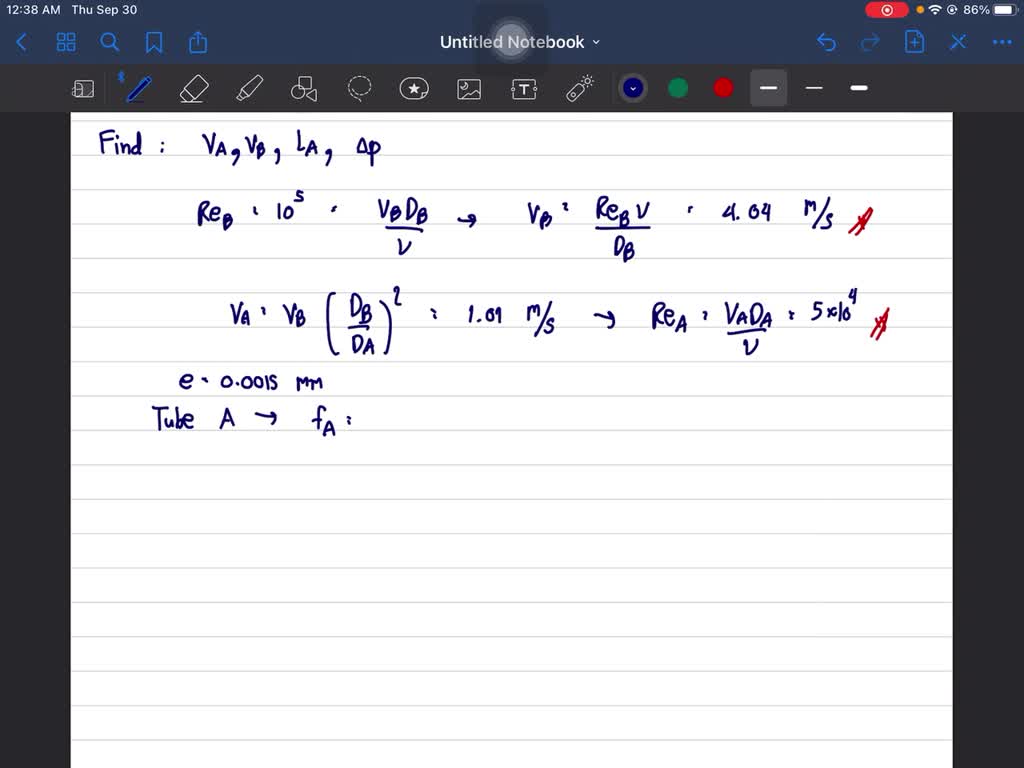 12:38 AM Thu Sep 30
86%
Untitled Notebook
Find : VA, VB, LA, Δp
ReB = 10^5 = VB DB / ν → VB = ReB ν / DB = 4.04 m/s
VA = VB (DB / DA)^2 = 1.01 m/s → ReA = VA DA / ν = 5×10^4
e = 0.0015 mm
Tube A → fA =